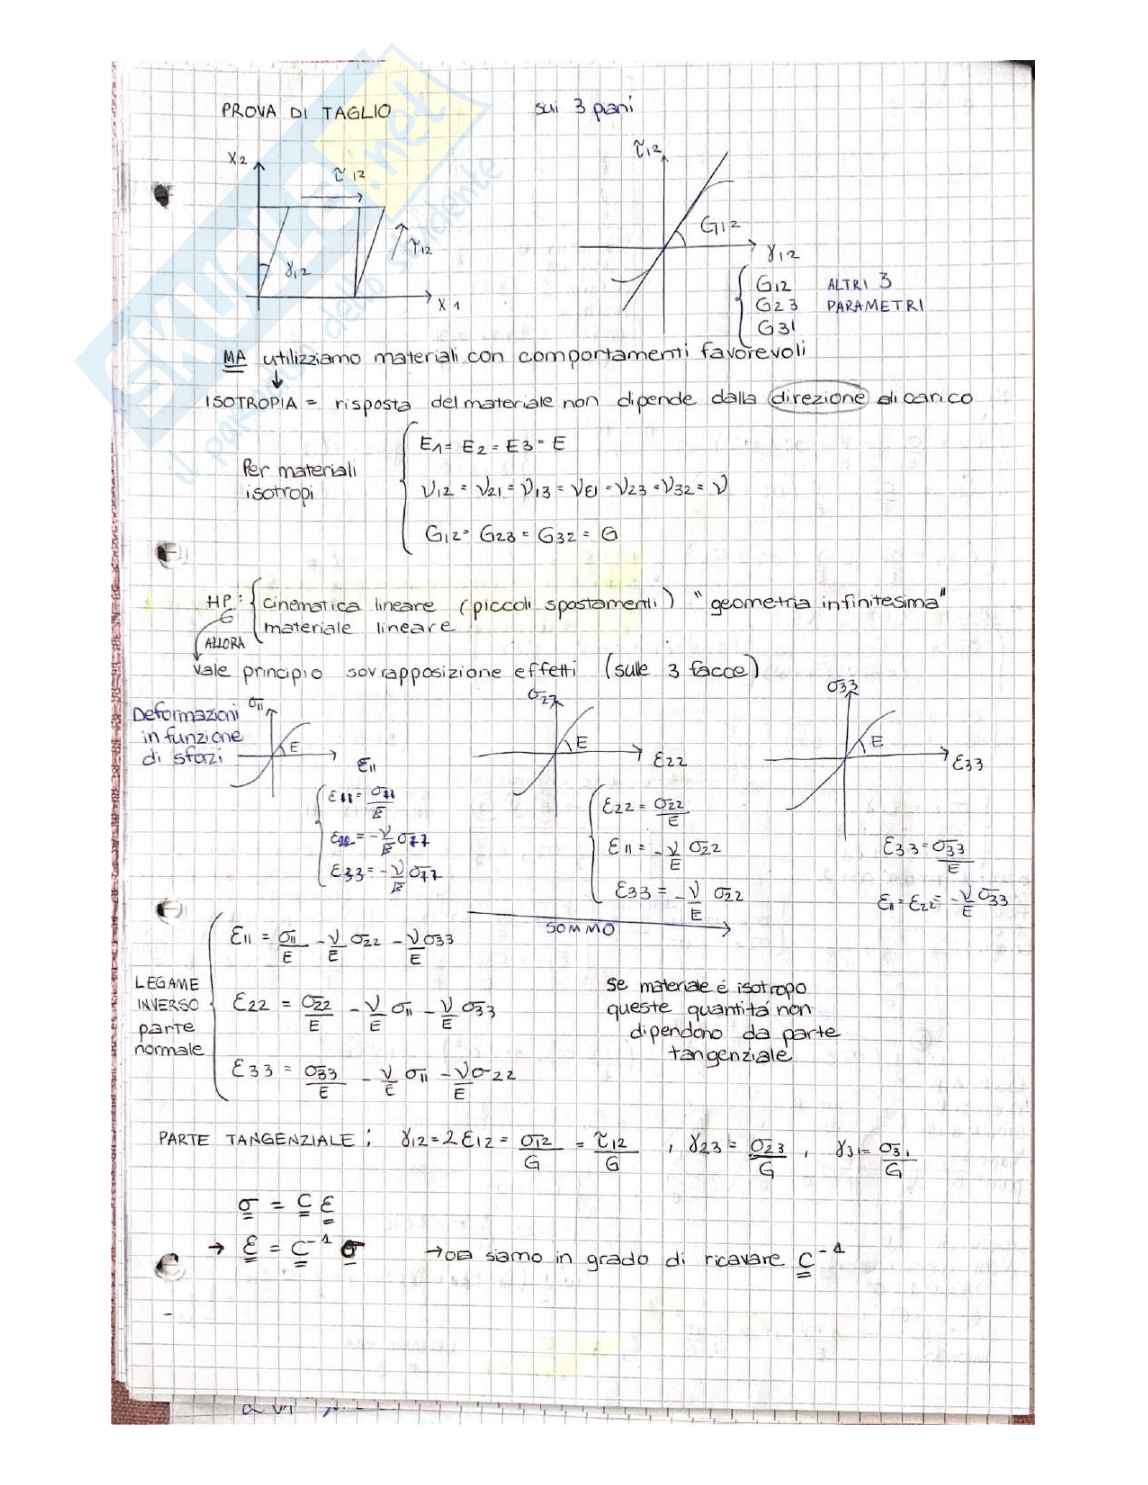 PROVA DI TAGLIO sui 3 piani
X2 τ12 τ12
τ12 G12
γ12 γ12
X1
G12 ALTRI 3
G23 PARAMETRI
G31
MA utilizziamo materiali con comportamenti favorevoli
ISOTROPIA = risposta del materiale non dipende dalla direzione di carico
E1 = E2 = E3 = E
Per materiali
isotropi
ν12 = ν21 = ν13 = ν31 = ν23 = ν32 = ν
G12 = G23 = G32 = G
HP: cinematica lineare (piccoli spostamenti) "geometria infinitesima"
materiale lineare
ALLORA
Vale principio sovrapposizione effetti (sulle 3 facce)
Deformazioni
in funzione
di sfozi
σ11 E ε11
σ22 E ε22
σ33 E ε33
ε11 = σ11/E
ε22 = -ν/E σ11
ε33 = -ν/E σ11
ε22 = σ22/E
ε11 = -ν/E σ22
ε33 = -ν/E σ22
ε33 = σ33/E
ε11 = ε22 = -ν/E σ33
SOMMO
LEGAME
INVERSO
parte
normale
ε11 = σ11/E - ν/E σ22 - ν/E σ33
ε22 = σ22/E - ν/E σ11 - ν/E σ33
ε33 = σ33/E - ν/E σ11 - ν/E σ22
se materiale é isotropo
queste quantitá non
dipendono da parte
tangenziale
PARTE TANGENZIALE: γ12 = 2ε12 = σ12/G = τ12/G , γ23 = σ23/G , γ31 = σ31/G
σ = C ε
→ ε = C⁻¹ σ → siamo in grado di ricavare C⁻¹
SKUOLA.net
il paradiso dello studente